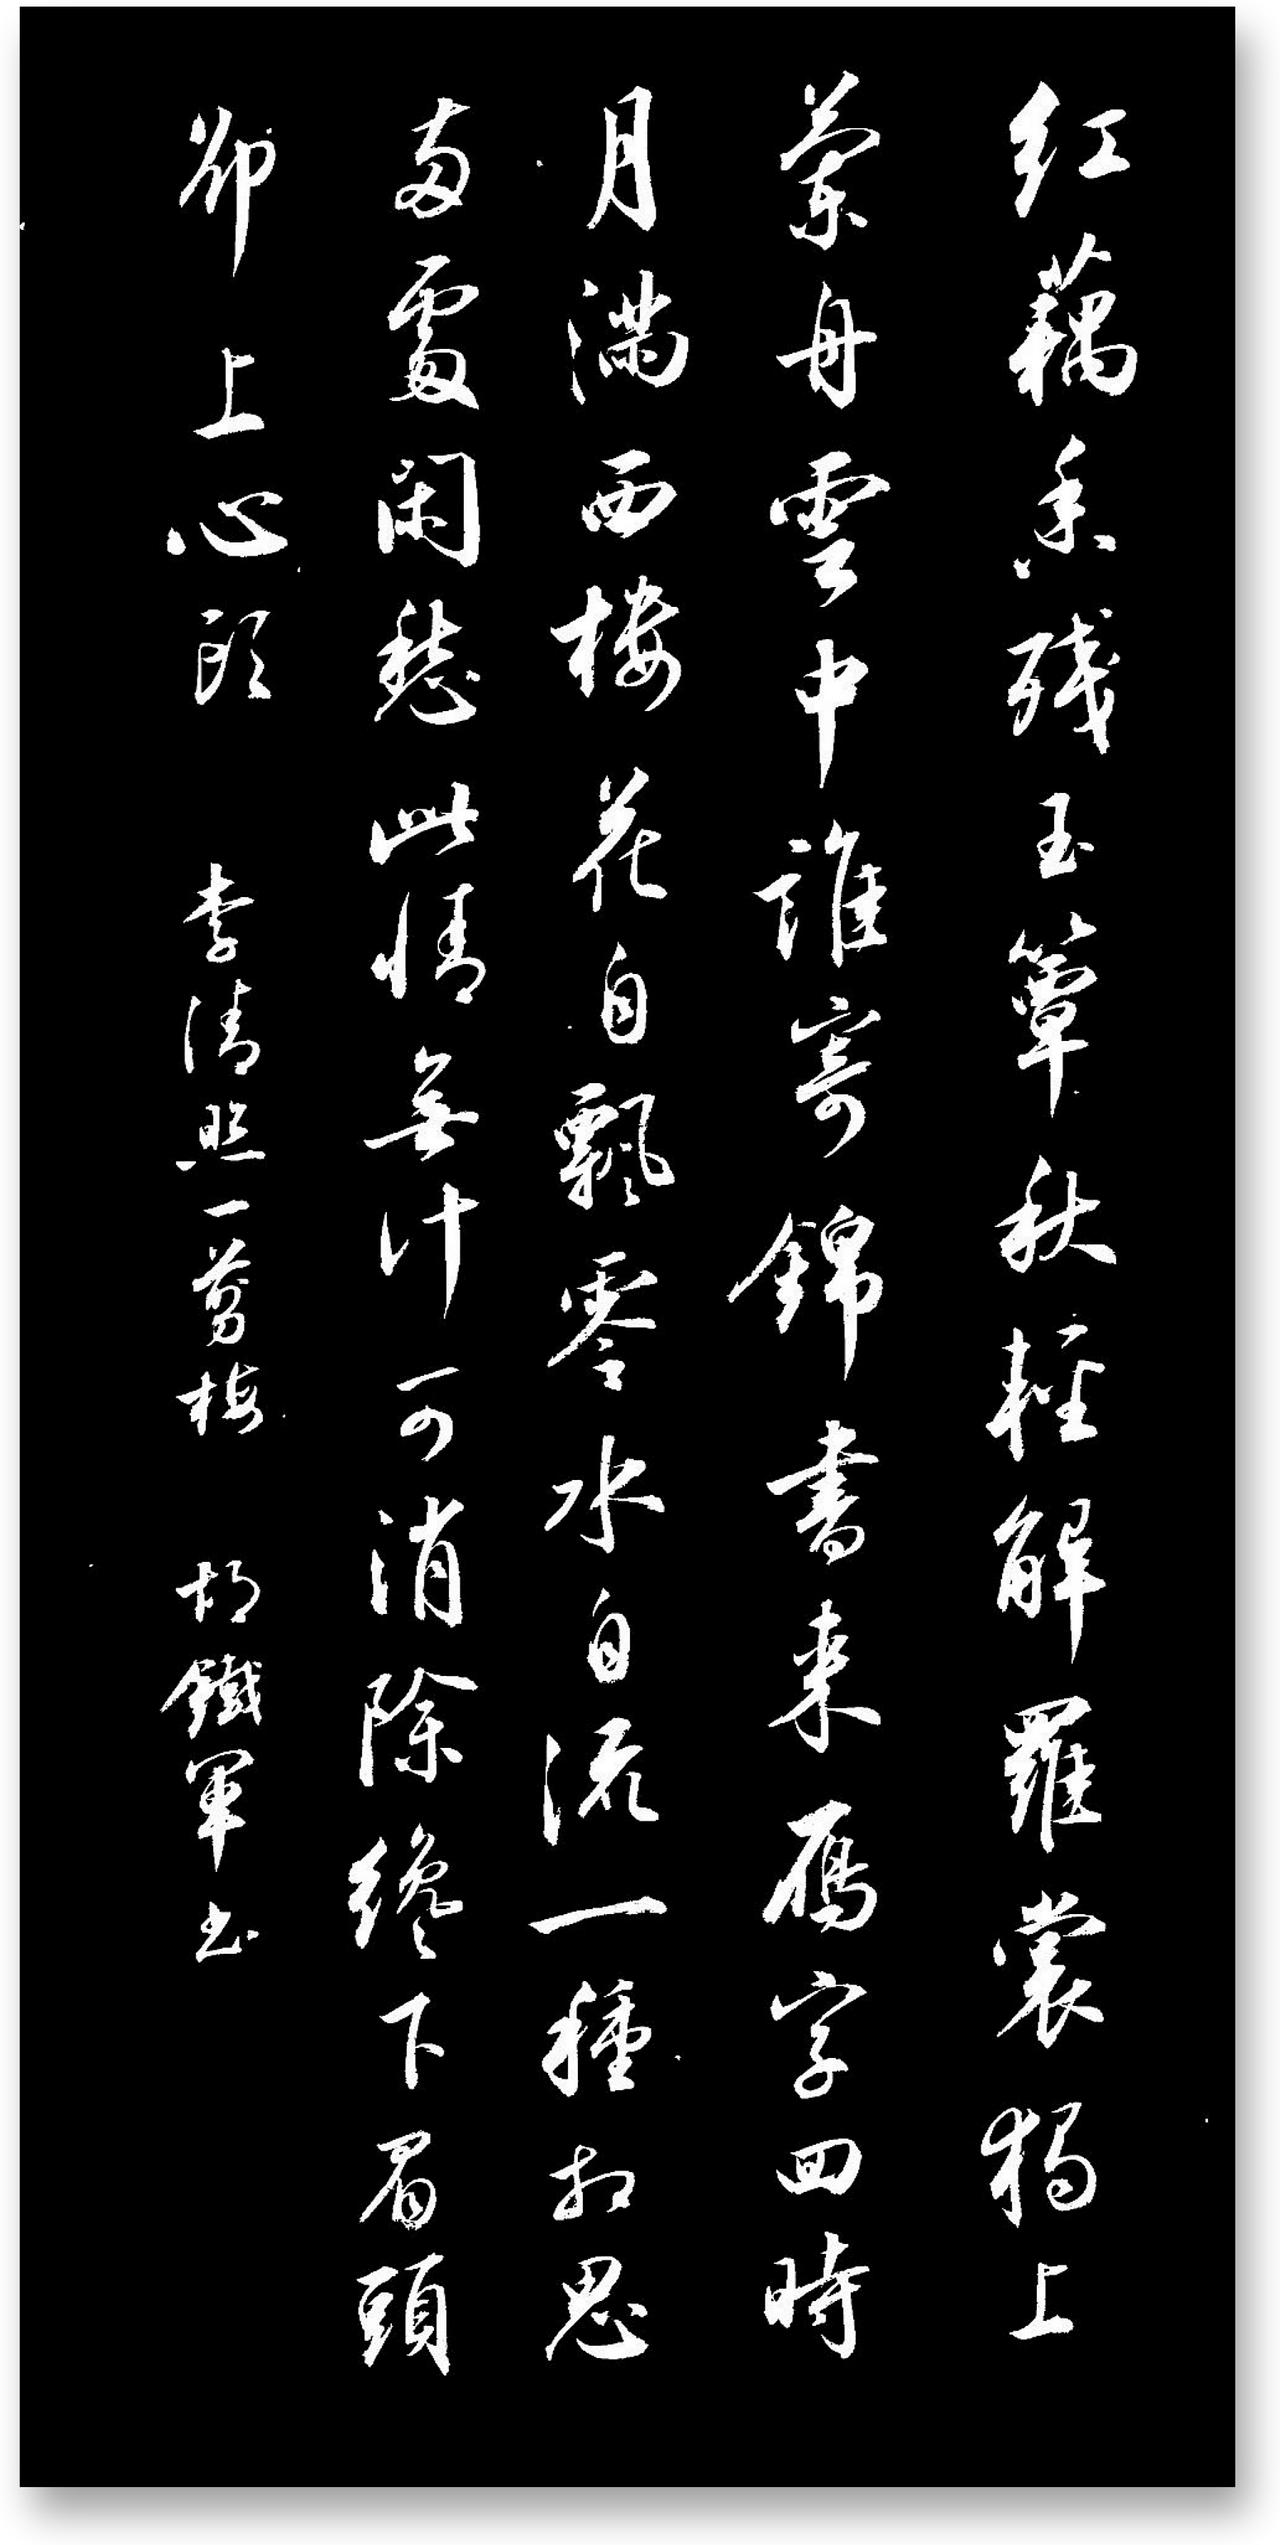 红藕香残玉簟秋輕解羅裳獨上
蘭舟雲中誰寄錦書来雁字回時
月滿西楼花自飄零水自流一種相思
两處闲愁此情無计可消除纔下眉頭
卻上心頭 李清照一剪梅 胡鐵軍书